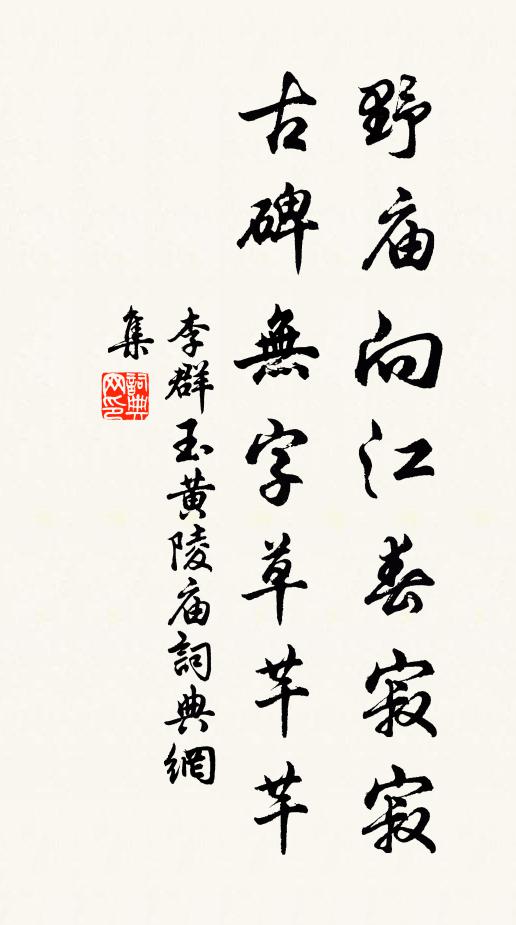 野庙向江春寂寂
古碑無字草芊芊
李群玉黄陵庙詞典網
集
詞典
网印